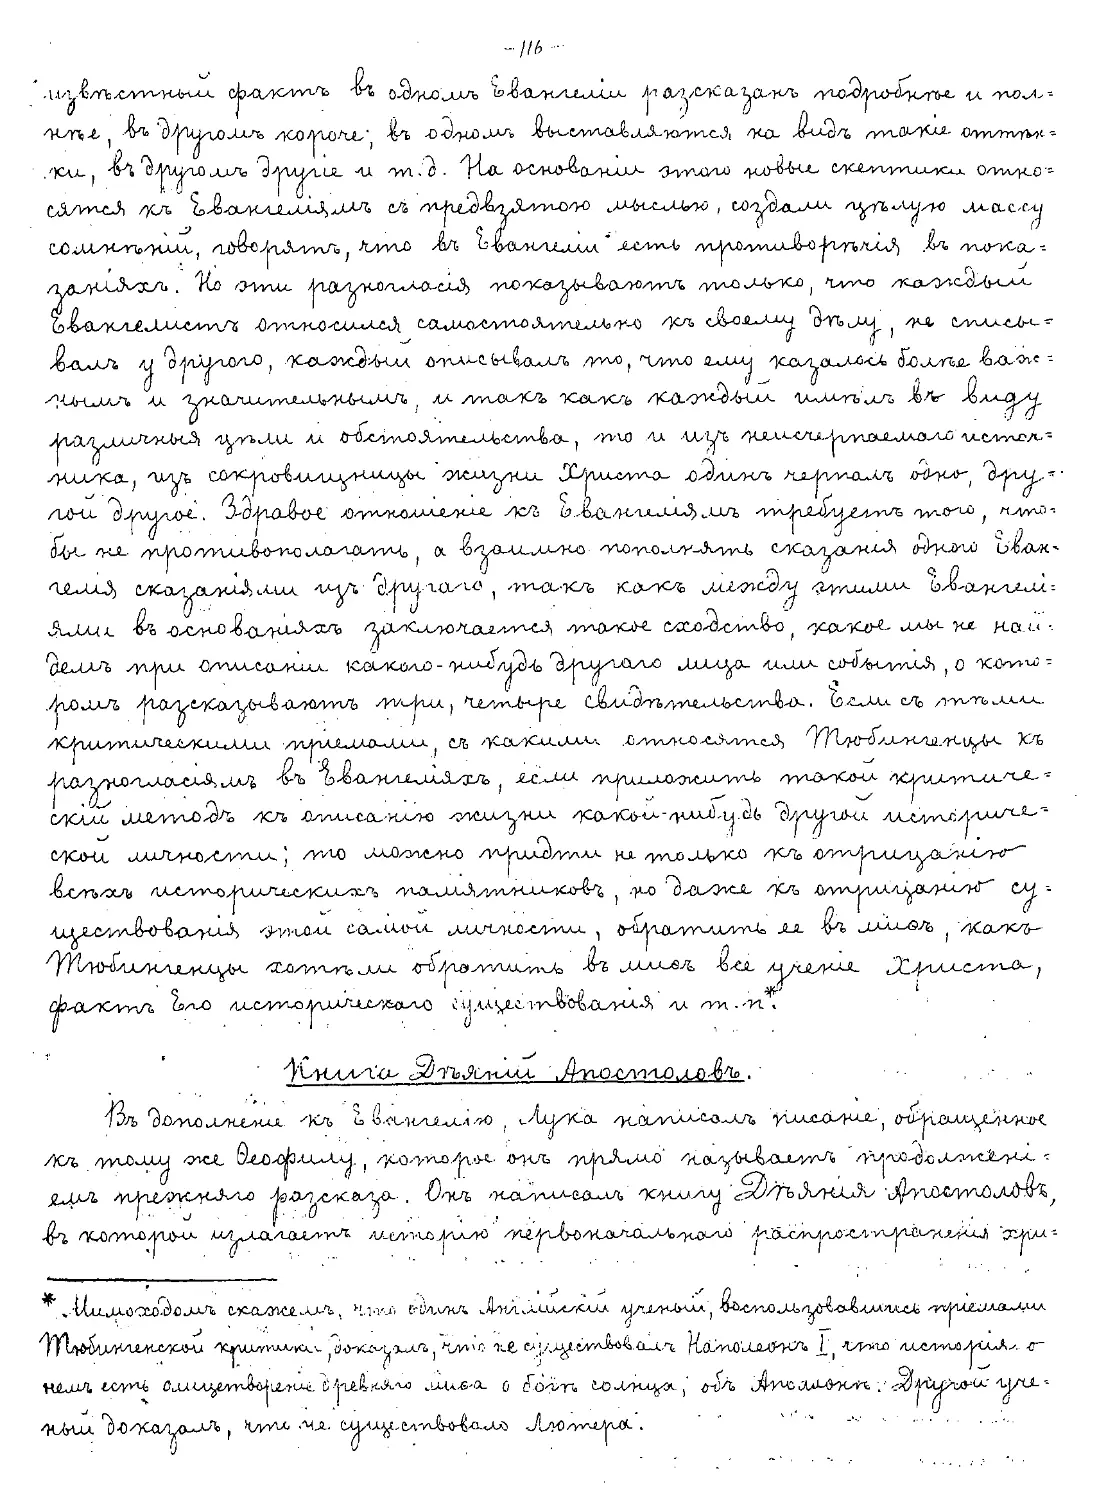 - 116 -
извѣстный фактъ въ одномъ Евангеліи разсказанъ подробнѣе и пол=
нѣе, въ другомъ короче; въ одномъ выставляются на видъ такіе оттѣн=
ки, въ другомъ другіе и т. д. На основаніи этого новые скептики отно=
сятся къ Евангеліямъ съ предвзятою мыслью, создали цѣлую массу
сомнѣній, говорятъ, что въ Евангеліи есть противорѣчія въ пока=
заніяхъ. Но эти разногласія показываютъ только, что каждый
Евангелистъ относился самостоятельно къ своему дѣлу, не списы=
валъ у другого, каждый описывалъ то, что ему казалось болѣе важ=
нымъ и значительнымъ, и такъ какъ каждый имѣлъ въ виду
различныя цѣли и обстоятельства, то и изъ неисчерпаемаго источ=
ника, изъ сокровищницы жизни Христа одинъ черпалъ одно, дру=
гой другое. Здравое отношеніе къ Евангеліямъ требуетъ того, что=
бы не противополагать, а взаимно пополнять сказанія одного Еван=
гелія сказаніями изъ другаго, такъ какъ между этими Евангелі=
ями въ основаніяхъ заключается такое сходство, какое мы не най=
демъ при описаніи какого-нибудь другаго лица или событія, о кото=
ромъ разсказываютъ три, четыре свидѣтельства. Если съ тѣми
критическими пріемами, съ какими относятся Тюбингенцы къ
разногласіямъ въ Евангеліяхъ, если приложить такой критиче=
скій методъ къ описанію жизни какой-нибудь другой историче=
ской личности; то можно придти не только къ отрицанію
всѣхъ историческихъ памятниковъ, но даже къ отрицанію су=
ществованія этой самой личности, обратить ее въ миѳъ, какъ
Тюбингенцы хотѣли обратить въ миѳъ все ученіе Христа,
фактъ Его историческаго существованія и т. п.*
Книга Дѣяній Апостоловъ.
Въ дополненіе къ Евангелію, Лука написалъ писаніе, обращенное
къ тому же Ѳеофилу, которое онъ прямо называетъ продолжені=
емъ прежняго разсказа. Онъ написалъ книгу Дѣянія Апостоловъ,
въ которой излагаетъ исторію первоначальнаго распространенія хри=
* Мимоходомъ скажемъ, что одинъ Англійскій ученый, воспользовавшись пріемами
Тюбингенской критики, доказалъ, что не существовалъ Наполеонъ I, что исторія о
немъ есть олицетвореніе древняго миѳа о богѣ солнца, объ Аполлонѣ. Другой уче=
ный доказалъ, что не существовало Лютера.